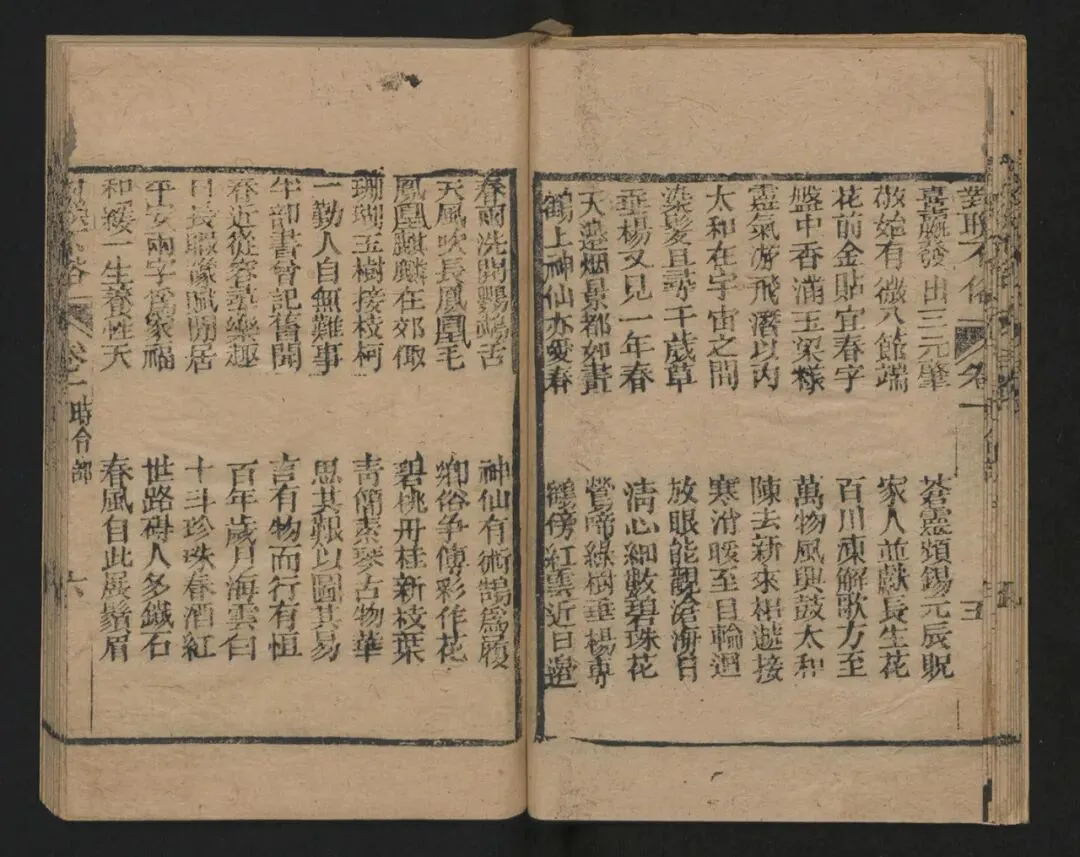 對聯不俗 卷一 五
喜薿發出三元肇 蒼靈頻錫元辰貺
敬始有儀八節端 家人並獻長生花
花前金貼宜春字 百川凍解歌方至
盤中香滿玉梁糕 萬物風興鼓太和
靈氣游飛潛以內 陳去新來相遞接
太和在宇宙之間 寒消暖至日輪迴
染髮且尋千歲草 放眼能觀滄海日
垂楊又見一年春 清心細數碧珠花
天邊烟景都如畫 鶯啼綠樹垂楊專
鶴上神仙亦愛春 鶴傍紅雲近日邊
春雨洗開鸚鵡舌 神仙有術鵠為履
天風吹長鳳凰毛 鄉俗爭傳彩作花
鳳凰麒麟在郊陬 碧桃丹桂新枝葉
珊瑚玉樹接枝柯 青簡素琴古物華
一勤人自無難事 思其艱以圖其易
半部書曾記舊聞 言有物而行有恒
春近從容尋樂趣 百年歲月海雲白
日長暇豫賦閒居 十斗珍珠春酒紅
平安兩字為家福 世路碍人多鐵石
和緩一生養性天 春風自此展鬚眉
卷一 時令部 六